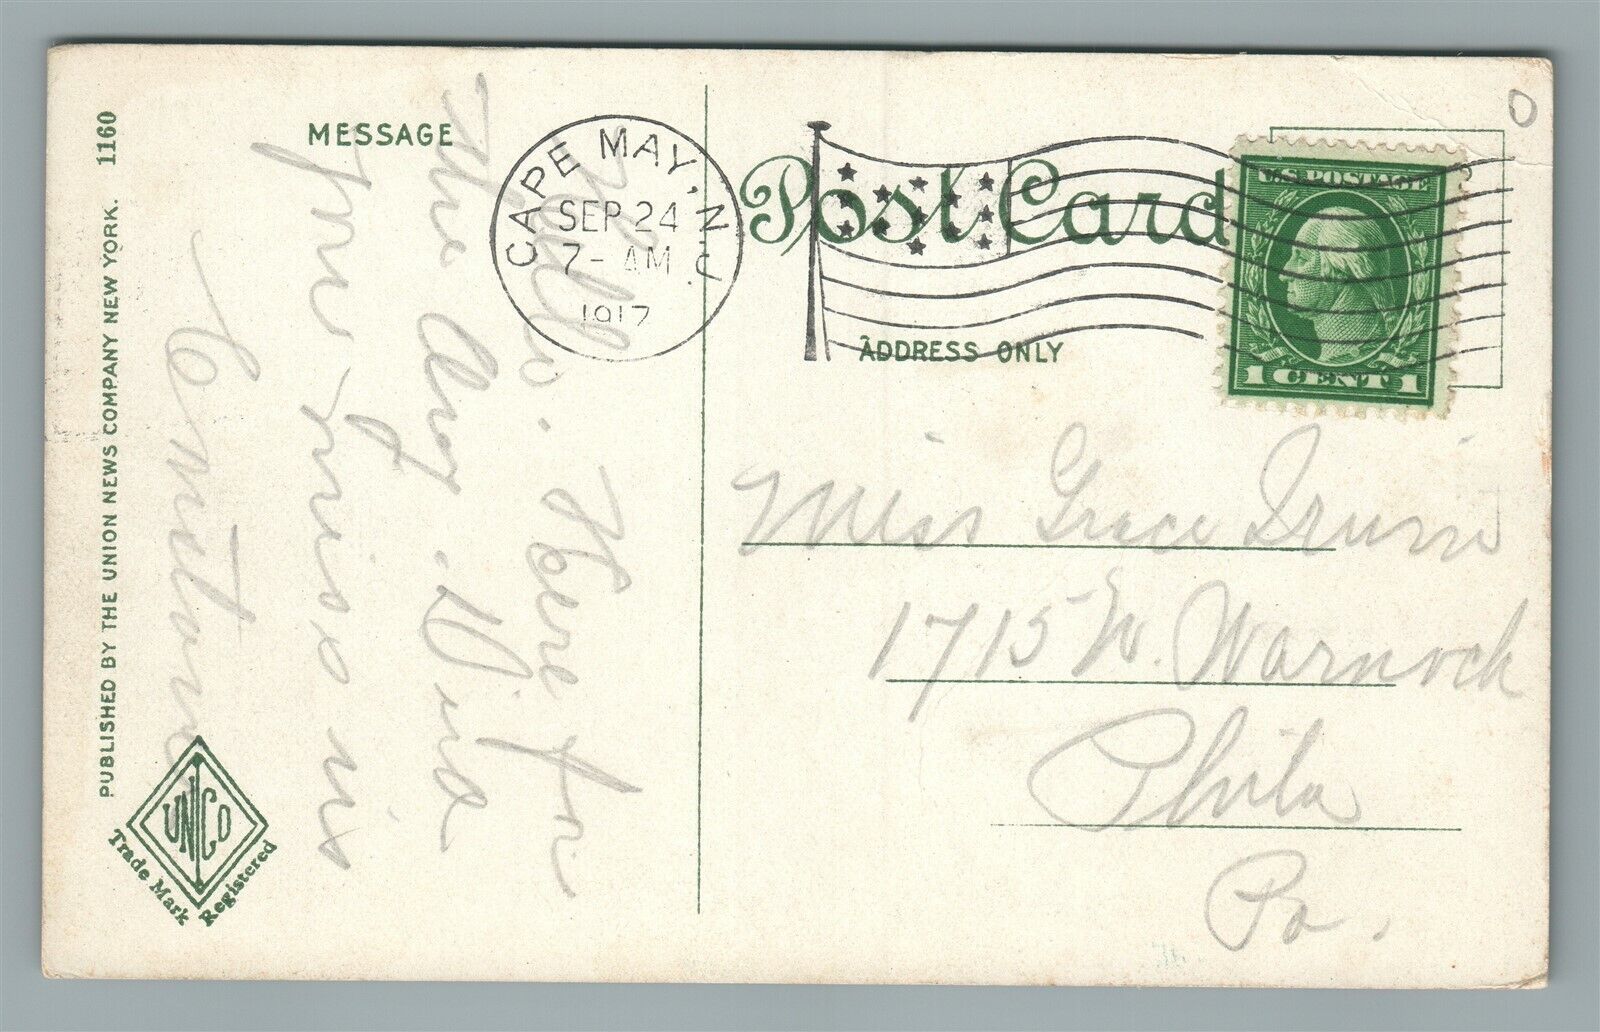 PUBLISHED BY THE UNION NEWS COMPANY NEW YORK. 1160
MESSAGE
Hello. Here for
The day. Did
you miss us
UNICO
Trade Mark Registered
CAPE MAY, N.J.
SEP 24
7- AM
1917
Post Card
ADDRESS ONLY
U.S. POSTAGE
1 CENT 1
Miss Grace
1715 W. Warnock
Phila
Pa.